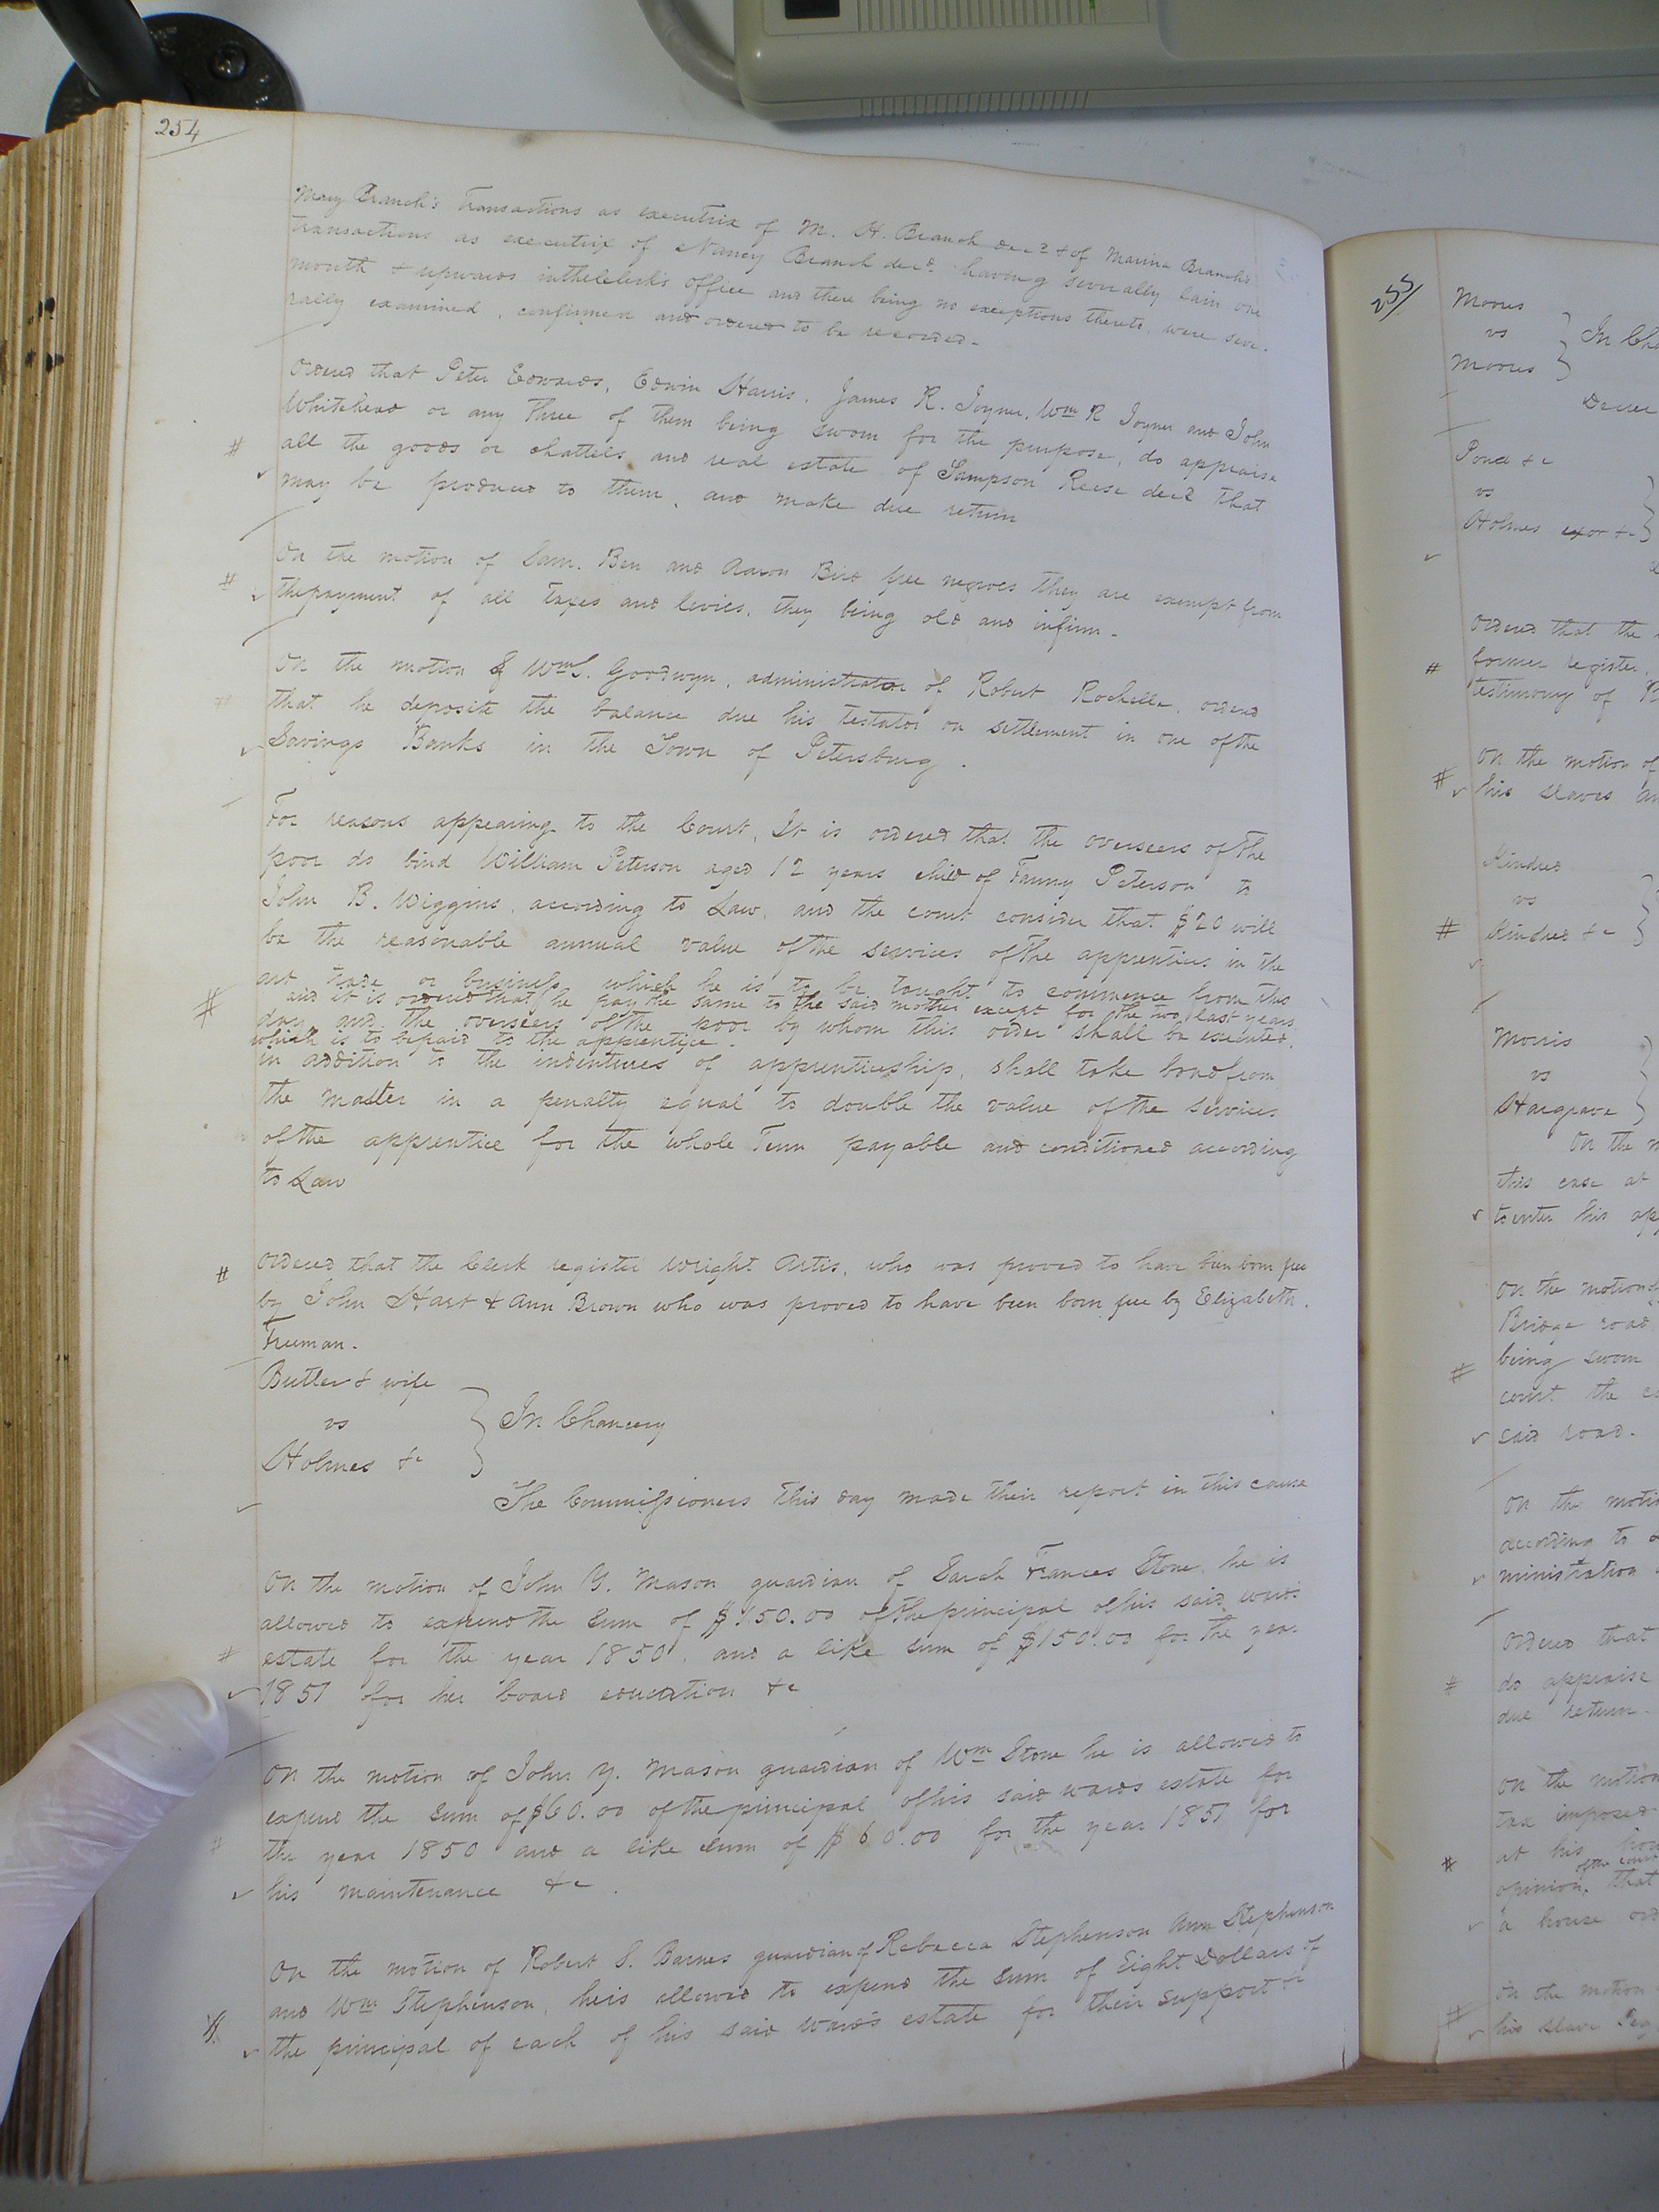 254
Mary Branch's transactions as executrix of M. H. Branch decd & of Mavina Branch's
transactions as executrix of Nancy Branch decd. having severally lain one
month & upwards in the Clerk's office and there being no exceptions thereto, were seve-
rally examined, confirmed and ordered to be recorded.
Ordered that Peter Edwards, Edwin Harris, James R. Joyner, Wm R Joyner and John
Whitehead or any three of them being sworn for the purpose, do appraise
# all the goods or chattels and real estate of Sampson Reese decd that
may be produced to them, and make due return
On the motion of Sam. Ben and Aaron Bird free negroes they are exempt from
# the payment of all taxes and levies, they being old and infirm.
On the motion of Wm S. Goodwyn, administrator of Robert Rochelle, ordered
# that he deposite the balance due his testator on settlement in one of the
Savings Banks in the Town of Petersburg.
For reasons appearing to the Court, It is ordered that the overseers of the
poor do bind William Peterson aged 12 years child of Fanny Peterson to
John B. Wiggins, according to Law, and the court consider that $20 will
be the reasonable annual value of the services of the apprentice in the
art trade or business which he is to be taught to commence from this
# and it is ordered that he pay the same to the said mother except for the two last years
day and the overseers of the poor by whom this order shall be executed,
which is to be paid to the apprentice.
in addition to the indentures of apprenticeship, shall take bond from
the master in a penalty equal to double the value of the services
of the apprentice for the whole Term payable and conditioned according
to Law
# Ordered that the Clerk register Wright Artis, who was proved to have been born free
by John Hart & Ann Brown who was proved to have been born free by Elizabeth
Freeman.
Butler & wife
vs } In Chancery
Holmes &c
The Commissioners this day made their report in this cause
On the motion of John Y. Mason guardian of Sarah Frances Stone, he is
allowed to expend the sum of $150.00 of the principal of his said wards
# estate for the year 1850, and a like sum of $150.00 for the year
1851 for her board education &c
On the motion of John Y. Mason guardian of Wm Stone he is allowed to
expend the sum of $60.00 of the principal of his said wards estate for
# the year 1850 and a like sum of $60.00 for the year 1851 for
his maintenance &c.
On the motion of Robert S. Barnes guardian of Rebecca Stephenson Ann Stephenson
and Wm Stephenson, he is allowed to expend the sum of Eight Dollars of
# the principal of each of his said wards estate for their support &c
255
Moores
vs } In Cha
Moores
Decree
Pond &c
vs
Holmes exor &c
Ordered that the
# former register,
testimony of
On the motion of
# his slaves
Kindred
vs
# Kindred &c
Morris
vs
Hargrave
On the
this case at
to enter his app
On the motion
Bridge road
# being sworn
court the
said road.
On the motio
according to
ministration
Ordered that
# do appraise
due return.
On the motion
tax imposed
at his
# of the court
opinion, that
a house
# On the motion
his slave